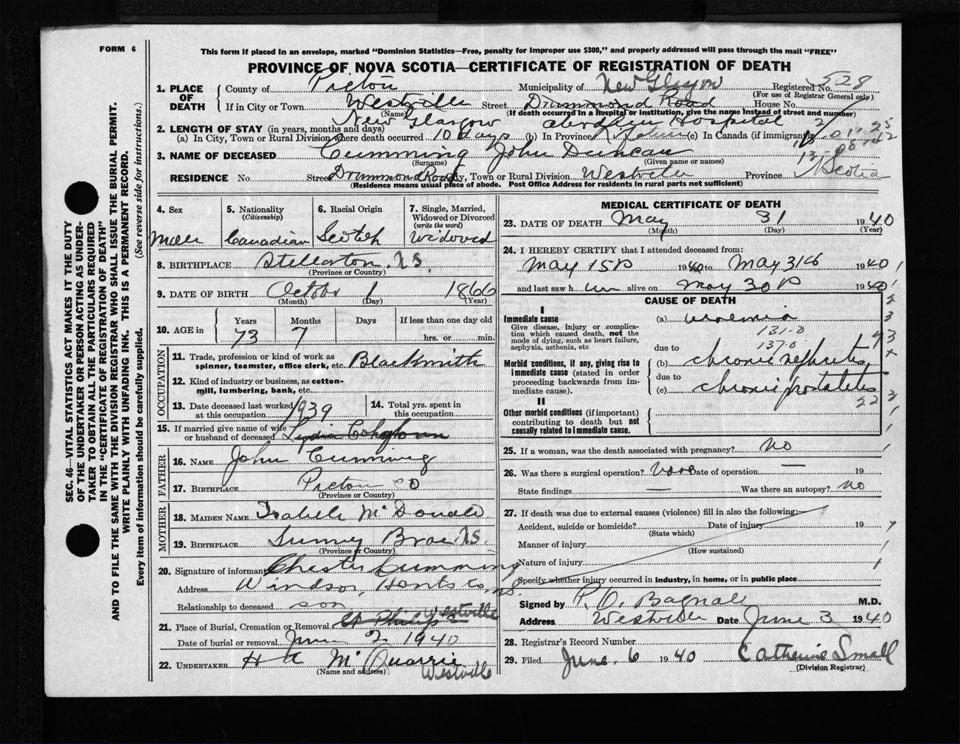 FORM 6
This form if placed in an envelope, marked "Dominion Statistics—Free, penalty for improper use $300," and properly addressed will pass through the mail "FREE"
PROVINCE OF NOVA SCOTIA—CERTIFICATE OF REGISTRATION OF DEATH
SEC. 46—VITAL STATISTICS ACT MAKES IT THE DUTY
OF THE UNDERTAKER OR PERSON ACTING AS UNDER-
TAKER TO OBTAIN ALL THE PARTICULARS REQUIRED
IN THE "CERTIFICATE OF REGISTRATION OF DEATH"
AND TO FILE THE SAME WITH THE DIVISION REGISTRAR WHO SHALL ISSUE THE BURIAL PERMIT.
WRITE PLAINLY WITH UNFADING INK. THIS IS A PERMANENT RECORD.
Every item of information should be carefully supplied. (See reverse side for instructions.)
1. PLACE OF DEATH County of Pictou Municipality of New Glasgow Registered No. 528
(For use of Registrar General only)
If in City or Town Westville Street Drummond Road House No.
(Name) (If death occurred in a hospital or institution, give the name instead of street and number)
New Glasgow Aberdeen Hospital
2. LENGTH OF STAY (in years, months and days)
(a) In City, Town or Rural Division where death occurred 10 days (b) In Province (c) In Canada (if immigrant)
3. NAME OF DECEASED Cumming John Duncan
(Surname) (Given name or names)
RESIDENCE No. Street Drummond Road City, Town or Rural Division Westville Province N Scotia
(Residence means usual place of abode. Post Office Address for residents in rural parts not sufficient)
4. Sex 5. Nationality (Citizenship) 6. Racial Origin 7. Single, Married, Widowed or Divorced (write the word)
Male Canadian Scotch Widowed
8. BIRTHPLACE Stellarton N.S.
(Province or Country)
9. DATE OF BIRTH Octobr 1 1866
(Month) (Day) (Year)
10. AGE in Years Months Days If less than one day old
73 7 hrs. or min.
OCCUPATION
11. Trade, profession or kind of work as spinner, teamster, office clerk, etc. Blacksmith
12. Kind of industry or business, as cotton-mill, lumbering, bank, etc.
13. Date deceased last worked at this occupation 1939 14. Total yrs. spent in this occupation
15. If married give name of wife or husband of deceased Lydia
FATHER
16. NAME John Cumming
17. BIRTHPLACE Pictou Co
(Province or Country)
MOTHER
18. MAIDEN NAME Isabelle McDonald
19. BIRTHPLACE Sunny Brae N.S.
(Province or Country)
20. Signature of informant Chester Cumming
Address Windsor, Hants Co, N.S.
Relationship to deceased son
21. Place of Burial, Cremation or Removal St Philips Westville
Date of burial or removal June 2 1940
22. UNDERTAKER H A McQuarrie
(Name and address) Westville
MEDICAL CERTIFICATE OF DEATH
23. DATE OF DEATH May 31 1940
(Month) (Day) (Year)
24. I HEREBY CERTIFY that I attended deceased from:
May 15th 1940 to May 31st 1940
and last saw him alive on May 30th 1940
CAUSE OF DEATH
I
Immediate cause (a) uremia
Give disease, injury or complication which caused death, not the mode of dying, such as heart failure, asphyxia, asthenia, etc.
131-0
due to 137-0
Morbid conditions, if any, giving rise to immediate cause (stated in order proceeding backwards from immediate cause). (b) chronic nephritis
due to
(c) chronic prostatitis
II
Other morbid conditions (if important) contributing to death but not causally related to immediate cause.
25. If a woman, was the death associated with pregnancy? No
26. Was there a surgical operation? None Date of operation — 19
State findings — Was there an autopsy? No
27. If death was due to external causes (violence) fill in also the following:
Accident, suicide or homicide? Date of injury 19
(State which)
Manner of injury
(How sustained)
Nature of injury
Specify whether injury occurred in industry, in home, or in public place
Signed by P. O. Bagnall M.D.
Address Westville Date June 3 1940
28. Registrar's Record Number
29. Filed June 6 1940 Catherine Small
(Division Registrar)